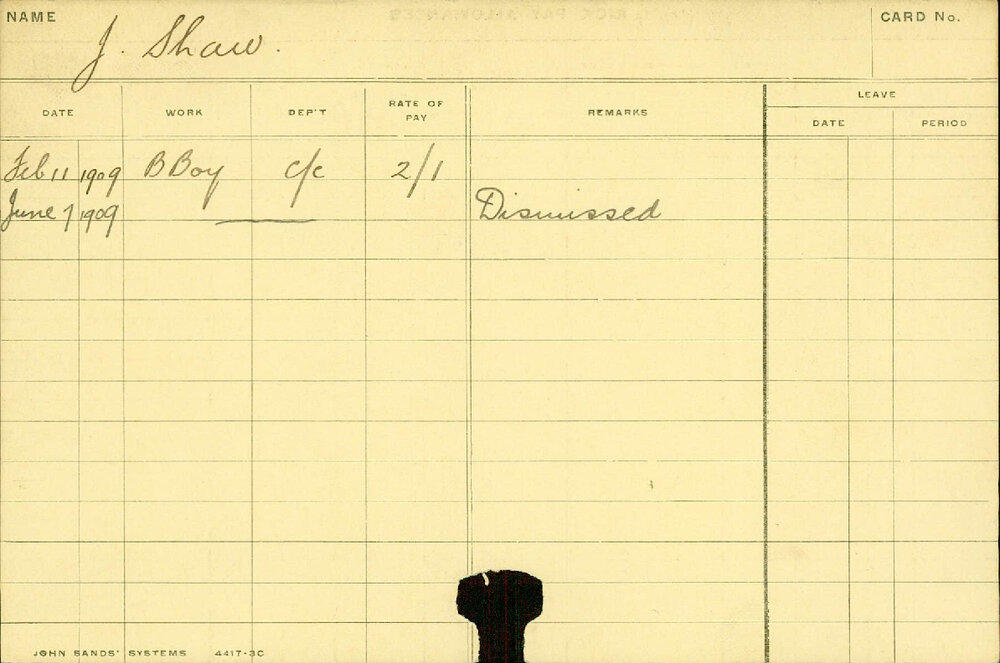 NAME J. Shaw. CARD No.
DATE WORK DEP'T RATE OF PAY REMARKS LEAVE
DATE PERIOD
Feb 11 1909 B Boy c/c 2/1
June 7 1909 Dismissed
JOHN SANDS' SYSTEMS 4417-3C